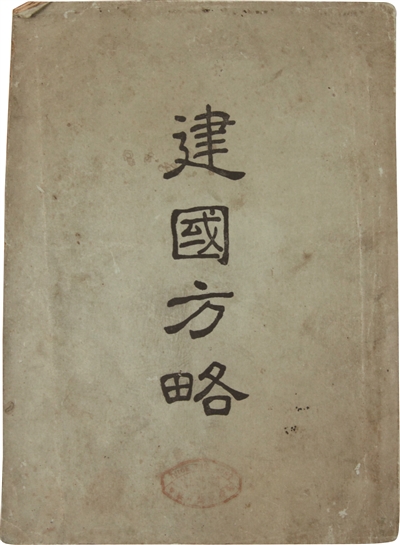 建國方略